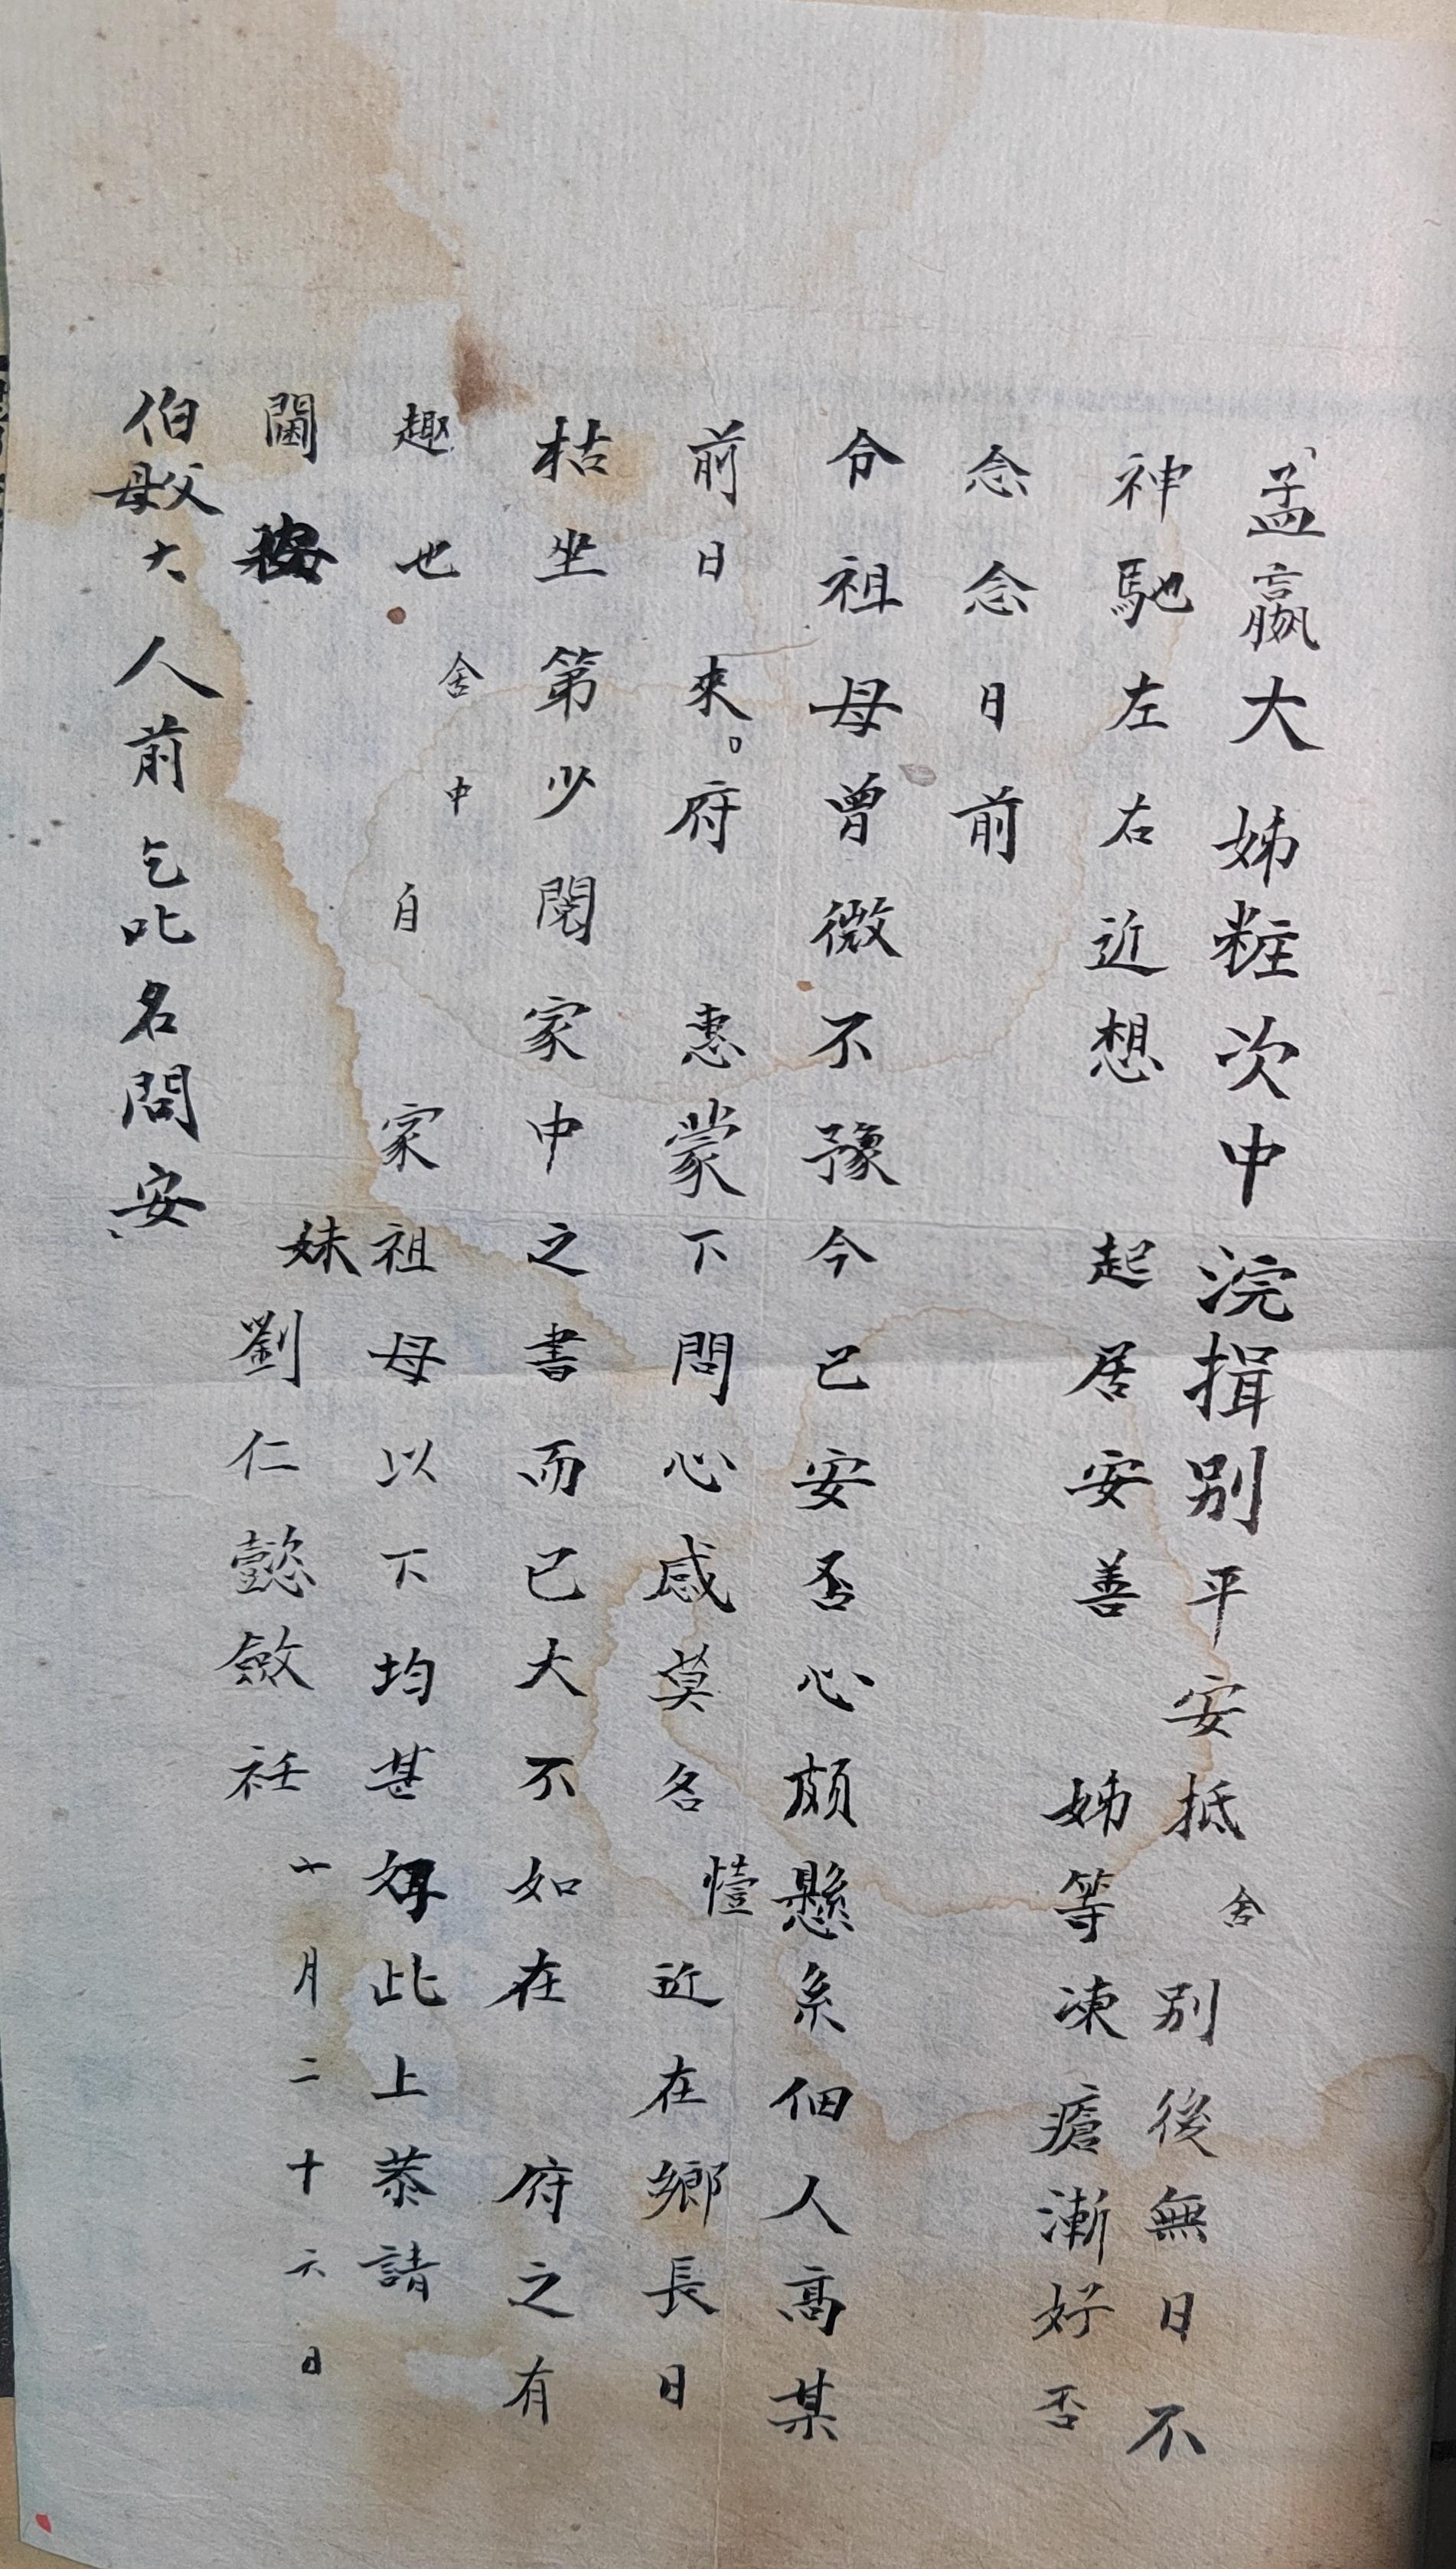 孟嬴大姊粧次中浣揖別平安抵舍別後無日不
神馳左右近想 起居安善 姊等凍瘡漸好否
念念日前
令祖母曾微不豫今已安否心頗懸系佃人高某
前日來。府 惠蒙下問心感莫名 懂近在鄉長日
枯坐第少閱家中之書而已大不如在 府之有
趣也舍中自 家祖母以下均甚好此上恭請
閫安 妹劉仁懿斂衽 十月二十六日
伯父母大人前乞叱名問安